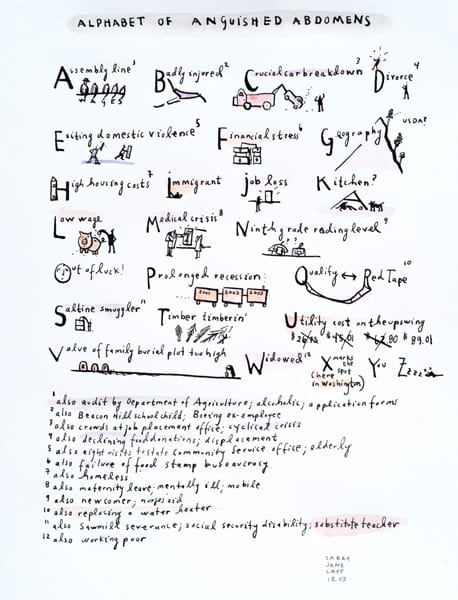 ALPHABET OF ANGUISHED ABDOMENS
Assembly line¹ Badly injured² Crucial car breakdown³ Divorce⁴
WAGES
Exiting domestic violence⁵ Financial stress⁶ Geography USDA?
High housing costs⁷ Immigrant Job loss Kitchen?
Low wage Medical crisis⁸ Ninth grade reading level⁹
Out of luck! Prolonged recession: Qualify ↔ Red Tape¹⁰
2001 2002 2003
Saltine smuggler¹¹ Timber timberin' Utility cost on the upswing
$89.01
Value of family burial plot too high Widowed¹² X marks the spot (here in Washington) You Zzzz
¹ also audit by Department of Agriculture; alcoholic; application forms
² also Beacon Hill schoolchild; Boeing ex-employee
³ also crowds at job placement office; cyclical crisis
⁴ also declining food donations; displacement
⁵ also eight visits to state Community Service Office; elderly
⁶ also failure of food stamp bureaucracy
⁷ also homeless
⁸ also maternity leave; mentally ill; mobile
⁹ also newcomer; nurses aid
¹⁰ also replacing a water heater
¹¹ also Sawmill severance; social security disability; substitute teacher
¹² also working poor
SARAH
JANE
LAPP
12.03